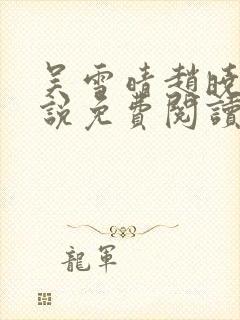 吴雪晴趙曉
說免費閱讀
龍軍